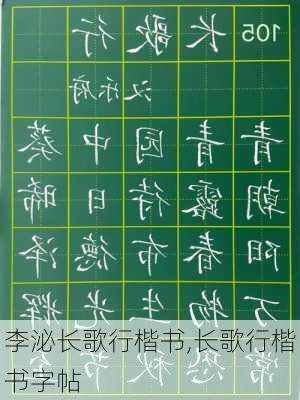 105 长歌行
汉乐府
青青园中葵
朝露待日晞
阳春布德泽
万物生光辉
李泌长歌行楷书,长歌行楷
书字帖